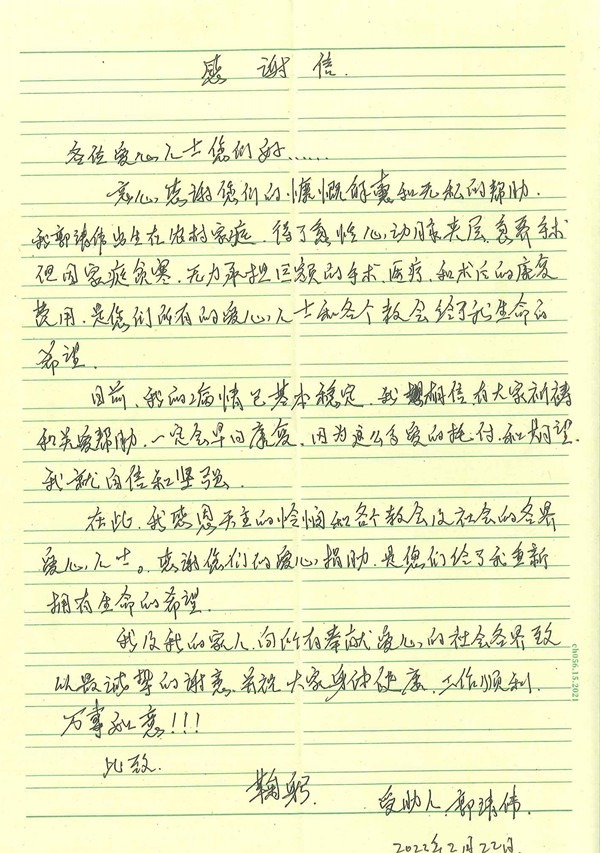 感谢信.
各位爱心人士您们好……
衷心感谢您们的慷慨解囊和无私的帮助.
我郭靖伟出生在农村家庭.得了急性心动脉夹层.急要手术
但因家庭贫寒.无力承担巨额的手术、医疗、和术后的康复
费用.是您们所有的爱心人士和各个教会给了我生命的
希望.
目前,我的病情已基本稳定.我相信有大家祈祷
和关爱帮助,一定会早日康复.因为这么多爱的托付.和期望.
我就自信和坚强.
在此,我感恩天主的怜悯和各个教会及社会的各界
爱心人士。感谢您们的爱心捐助.是您们给了我重新
拥有生命的希望.
我及我的家人.向所有奉献爱心的社会各界致
以最诚挚的谢意.并祝大家身体健康.工作顺利.
万事如意!!!
此致.
鞠躬.
受助人.郭靖伟.
2022年2月22日.
ch056.15.2021